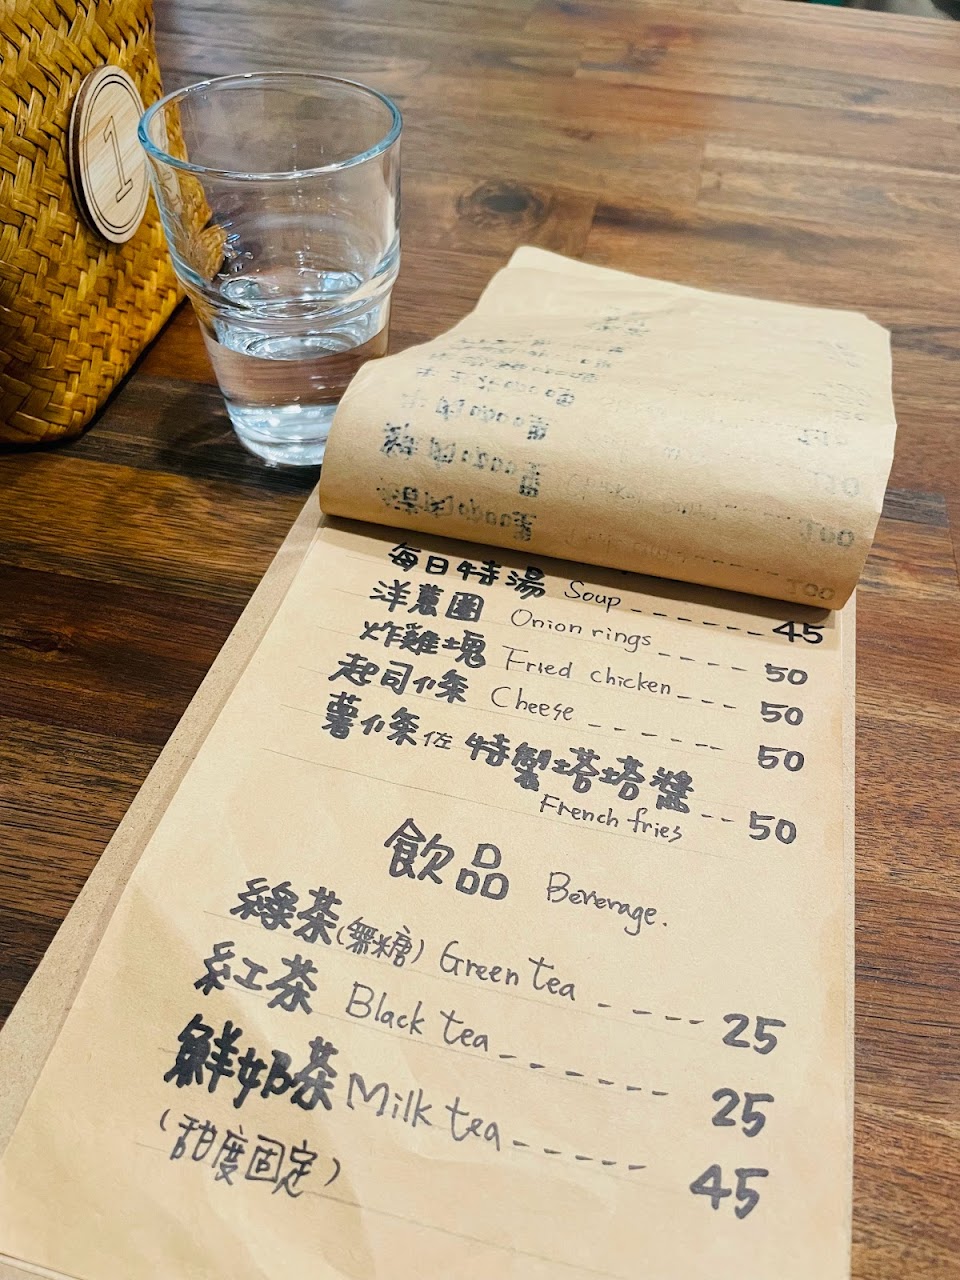 1
每日特湯 Soup ------ 45
洋蔥圈 Onion rings ---- 50
炸雞塊 Fried chicken --- 50
起司條 Cheese ------ 50
薯條佐 特製塔塔醬 -- 50
French fries
飲品 Beverage.
綠茶(無糖) Green tea - --- 25
紅茶 Black tea ------ 25
鮮奶茶 Milk tea ----- 45
(甜度固定)